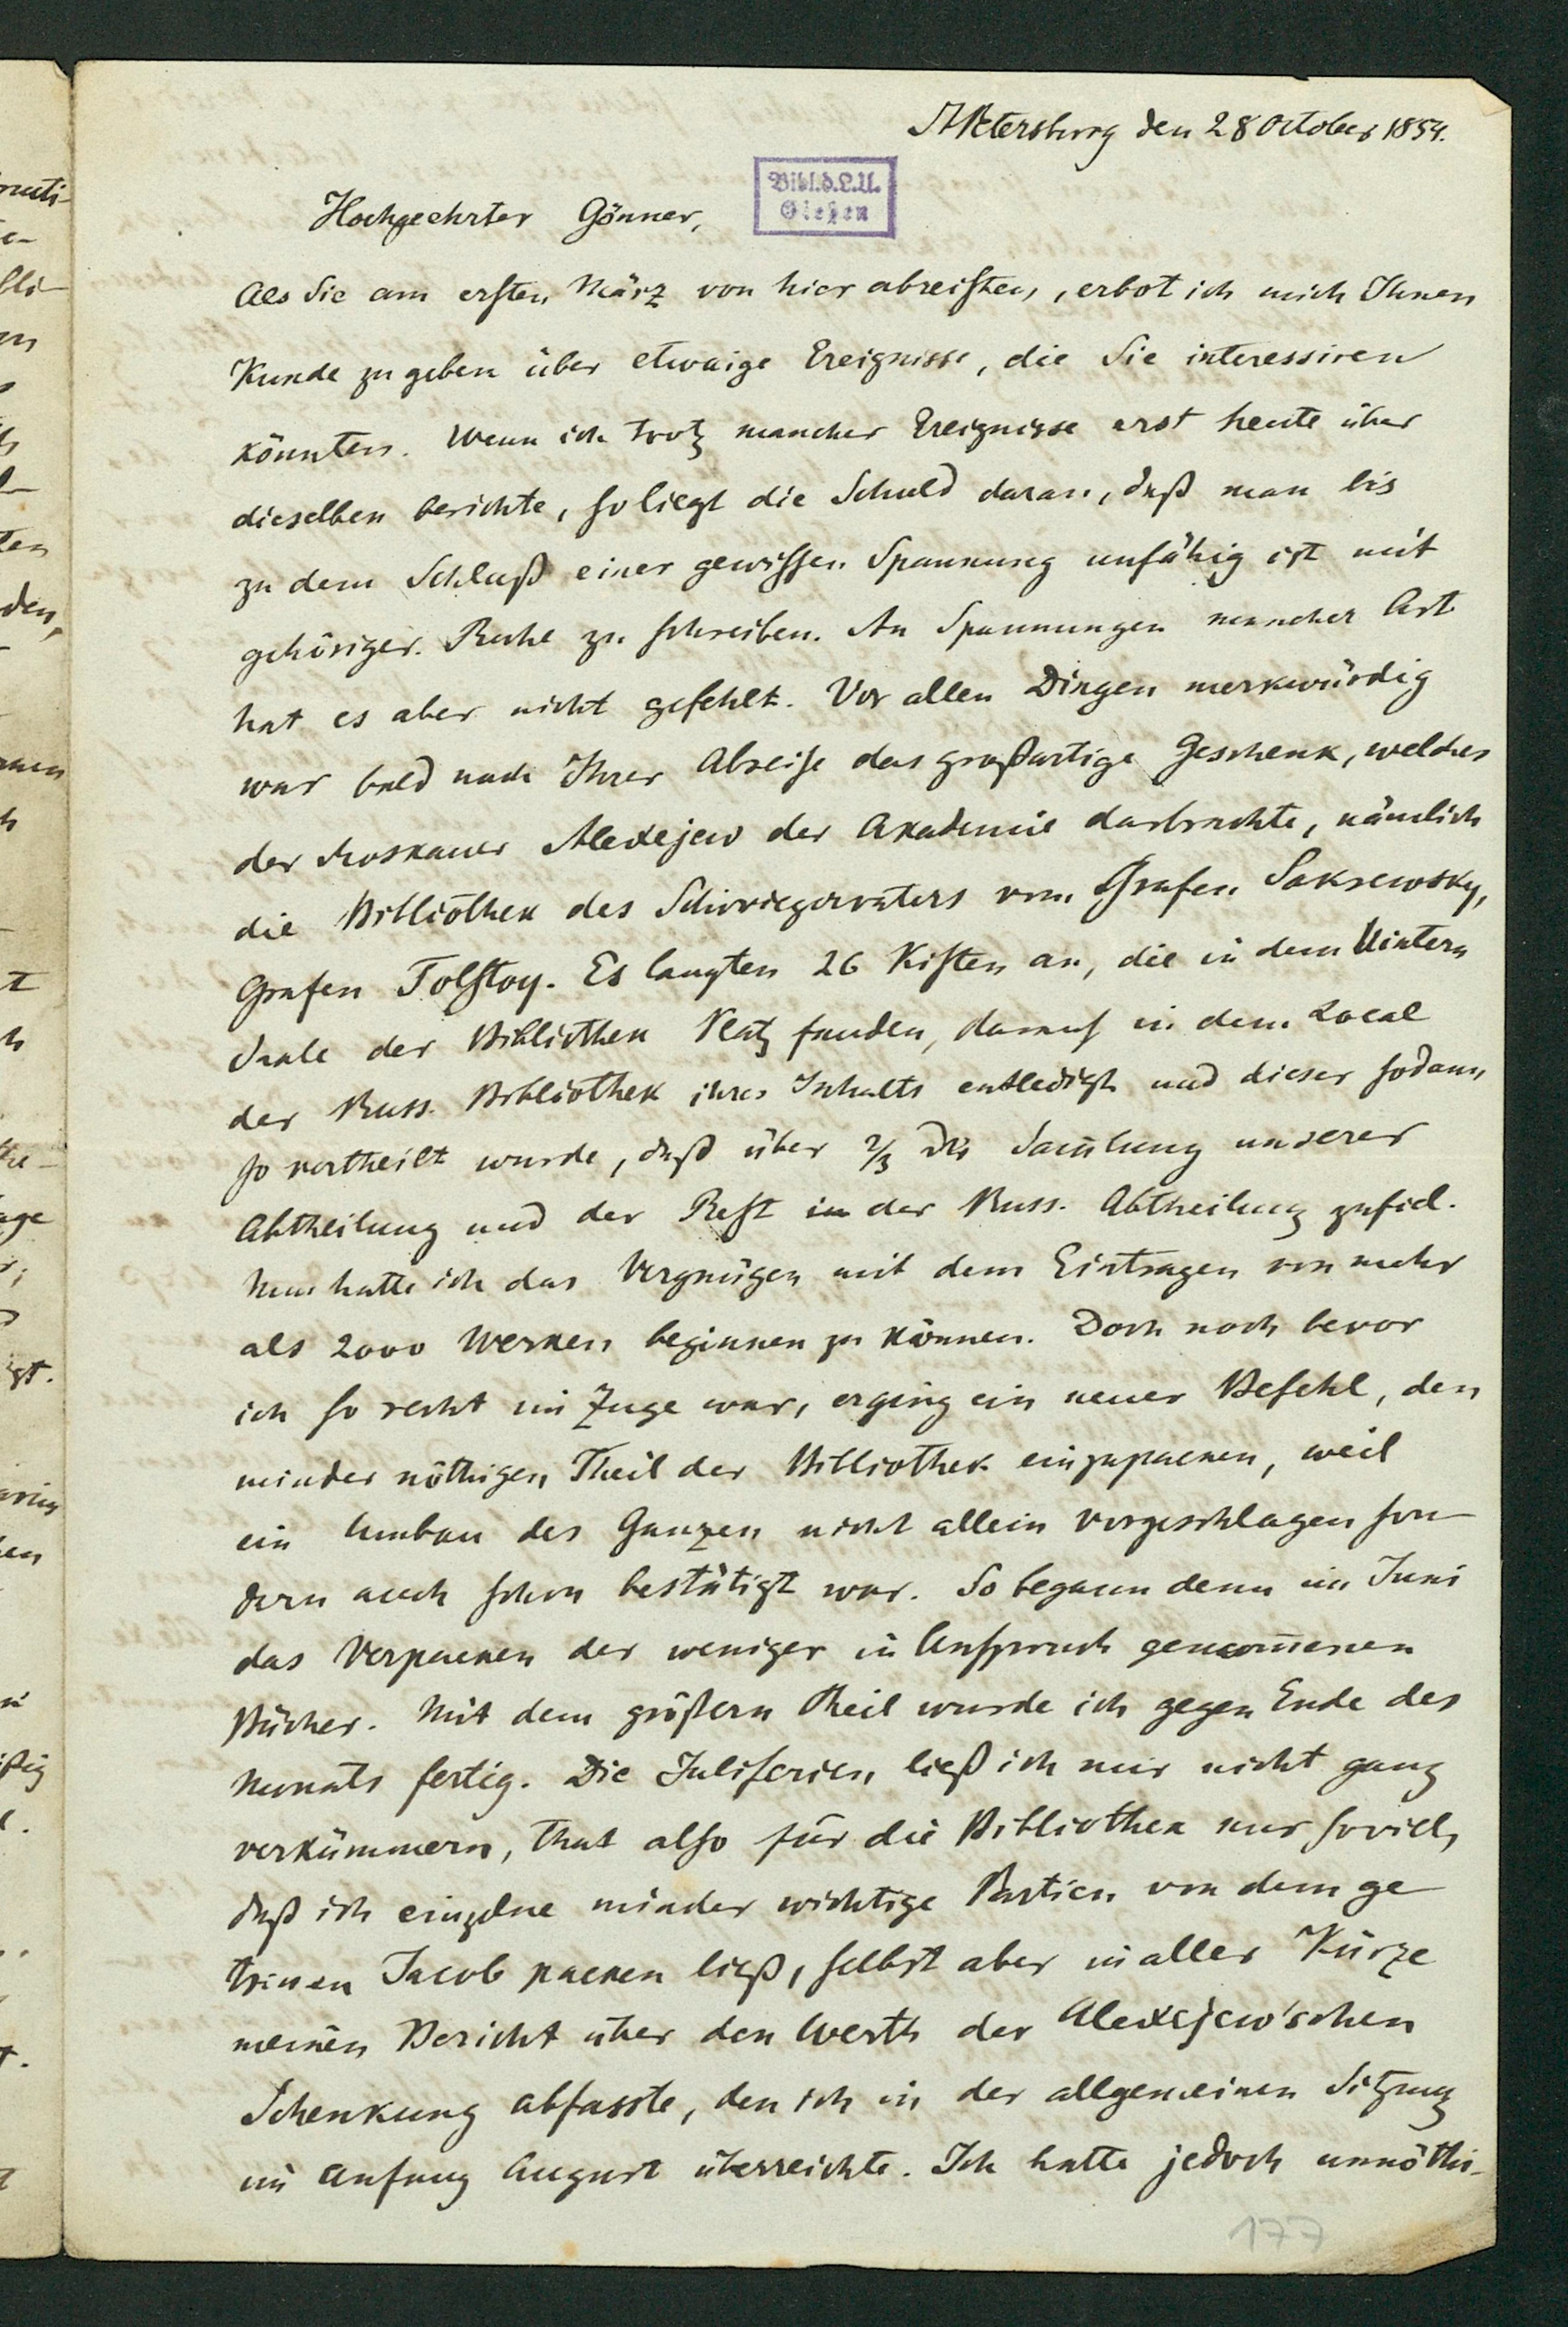 St Petersburg den 28 October 1854.
Bibl. d. L. U.
Gießen
Hochgeehrter Gönner,
Als Sie am ersten März von hier abreisten, erbot ich mich Ihnen
Kunde zu geben über etwaige Ereignisse, die Sie interessiren
könnten. Wenn ich trotz mancher Ereignisse erst heute über
dieselben berichte, so liegt die Schuld daran, daß man bis
zu dem Schluß einer gewissen Spannung unfähig ist mit
gehöriger Ruhe zu schreiben. An Spannungen mancher Art
hat es aber nicht gefehlt. Vor allen Dingen merkwürdig
war bald nach Ihrer Abreise das großartige Geschenk, welches
der Moskauer Alexejew der Akademie darbrachte, nämlich
die Bibliothek des Schwiegervaters vom Grafen Sakrewsky,
Grafen Tolstoy. Es langten 26 Kisten an, die in dem Untern
Saale der Bibliothek Platz fanden, darauf in dem Local
der Russ. Bibliothek ihres Inhalts entledigt und dieser sodann
so vertheilt wurde, daß über 2/3 der Sam̅lung unserer
Abtheilung und der Rest in der Russ. Abtheilung zufiel.
Nun hatte ich das Vergnügen mit dem Eintragen von mehr
als 2000 Werken beginnen zu können. Doch noch bevor
ich so recht im Zuge war, erging ein neuer Befehl, den
minder nöthigen Theil der Bibliothek einzupacken, weil
ein Umbau des Ganzen nicht allein vorgeschlagen son-
dern auch schon bestätigt war. So begann denn im Juni
das Verpacken der weniger in Anspruch genom̅enen
Bücher. Mit dem größern Theil wurde ich gegen Ende des
Monats fertig. Die Juliferien ließ ich mir nicht ganz
verkümmern, that also für die Bibliothek nur soviel,
daß ich einzelne minder wichtige Partien von dem ge
treuen Jacob packen ließ, selbst aber in aller Kürze
meinen Bericht über den Werth der Alexejew'schen
Schenkung abfasste, den ich in der allgemeinen Sitzung
im Anfang August überreichte. Ich hatte jedoch unnöthi-
177